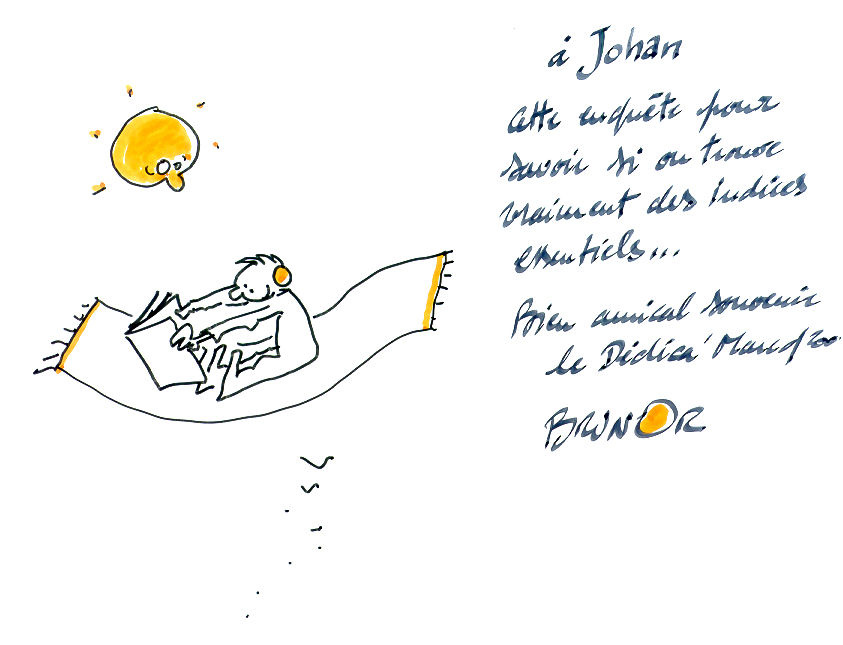 à Johan
Cette enquête pour
savoir si on trouve
vraiment des indices
essentiels...
Bien amical souvenir
le Dédica'
BRUNOR